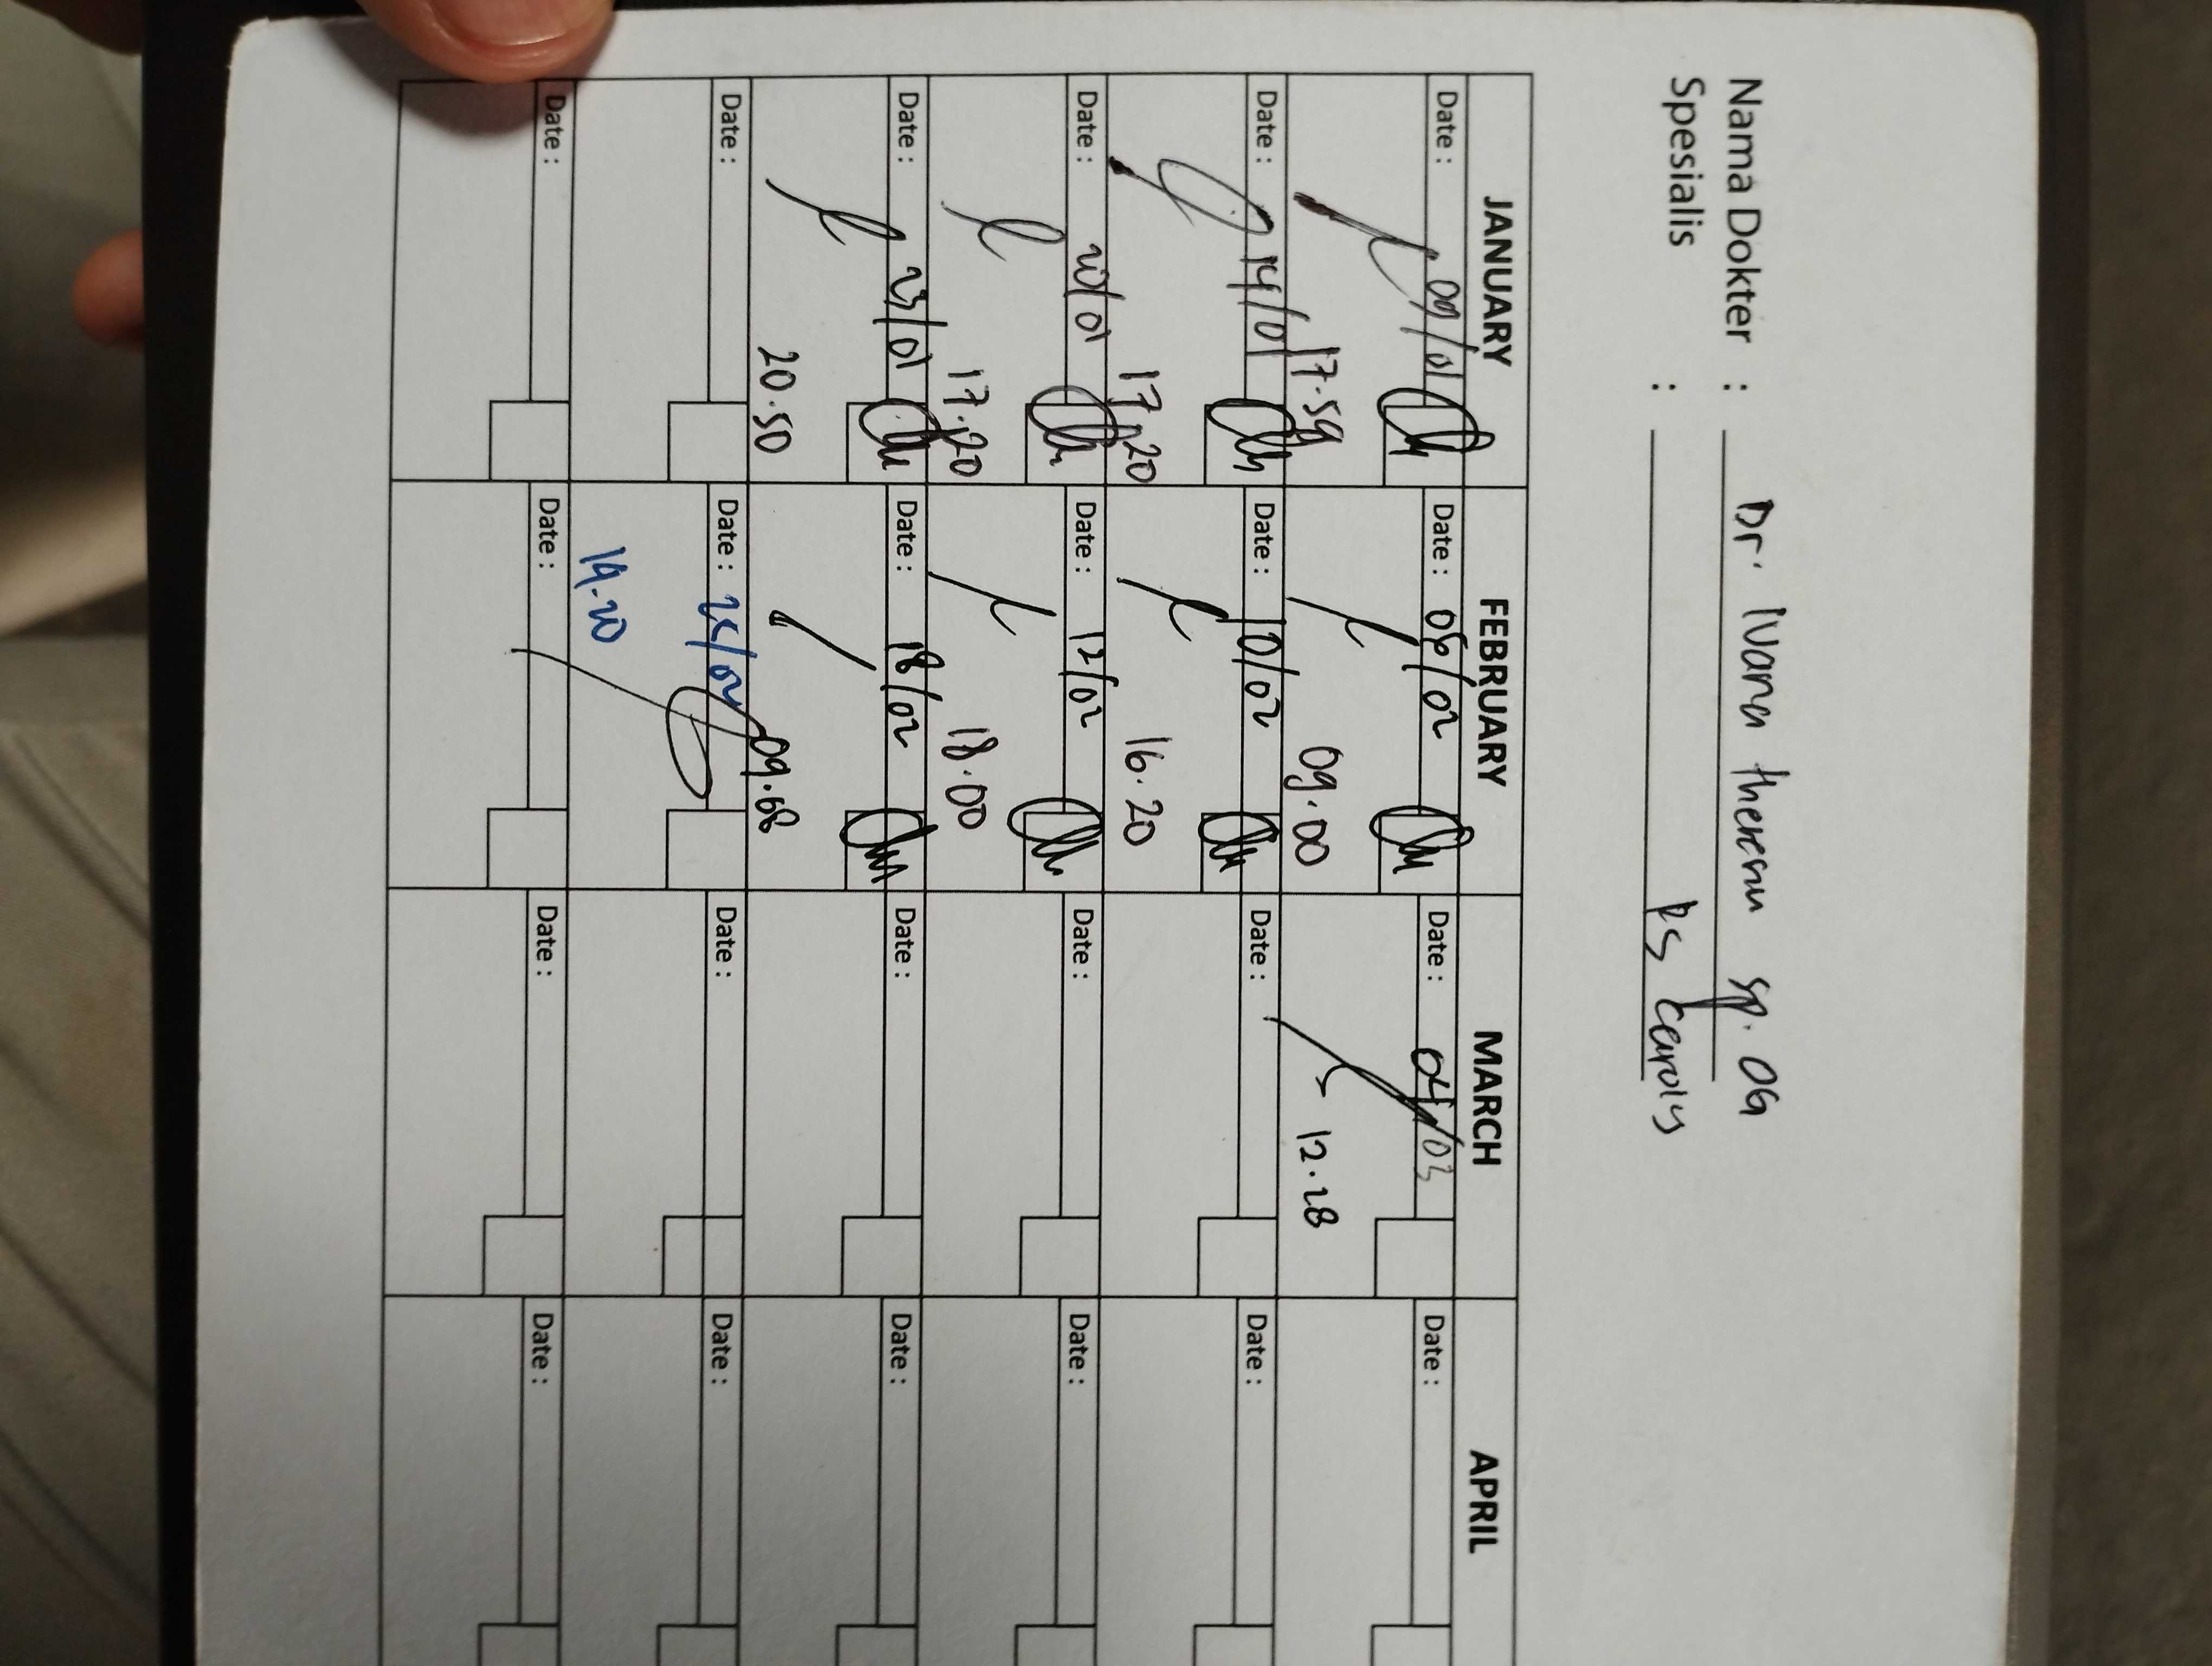 Nama Dokter : Dr. Ivana theresa sp. OG
Spesialis : RS Carolus
JANUARY FEBRUARY MARCH APRIL
Date : 09/01 Date : 06/02 Date : 04/03 Date :
17.59 09.00 12.28
Date : 14/01 Date : 10/02 Date : Date :
17.20 16.20
Date : 20/01 Date : 12/02 Date : Date :
17.20 18.00
Date : 23/01 Date : 18/02 Date : Date :
20.50
Date : Date : Date : Date :
Date : Date : Date : Date :